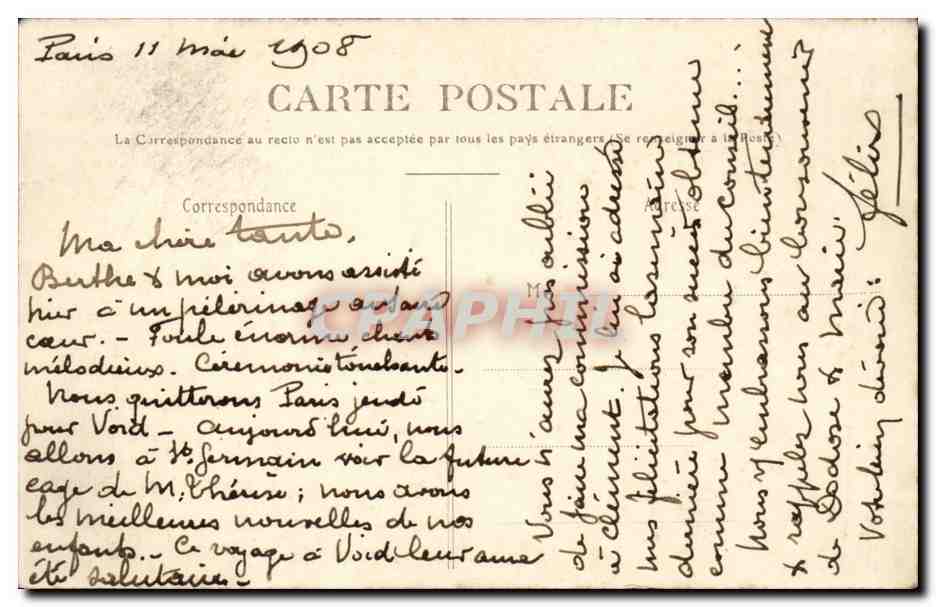 Paris 11 Mai 1908
CARTE POSTALE
La Correspondance au recto n'est pas acceptée par tous les pays étrangers (Se renseigner à la Poste)
Correspondance
Adresse
M
CPAPHIL
Ma chère tante,
Berthe & moi avons assisté
hier à un pélerinage au sacré
cœur. - Foule énorme chants
mélodieux. Cérémonie touchante.
Nous quitterons Paris jeudi
pour Void - aujourd'hui, nous
allons à St Germain voir la future
cage de M. Thérèse ; nous avons
les meilleures nouvelles de nos
enfants. - Ce voyage à Void leur a
été salutaire -
Vous n'aurez pas oublié
de faire ma commission
à Clément. Je lui ai adressé
mes félicitations la semaine
dernière pour son succès obtenu
comme membre du conseil....
Nous v/ embrassons bien tendrement
& rappelez nous au bon souvenir
de Dodose & Marie.
Votre bien dévoué : Félix